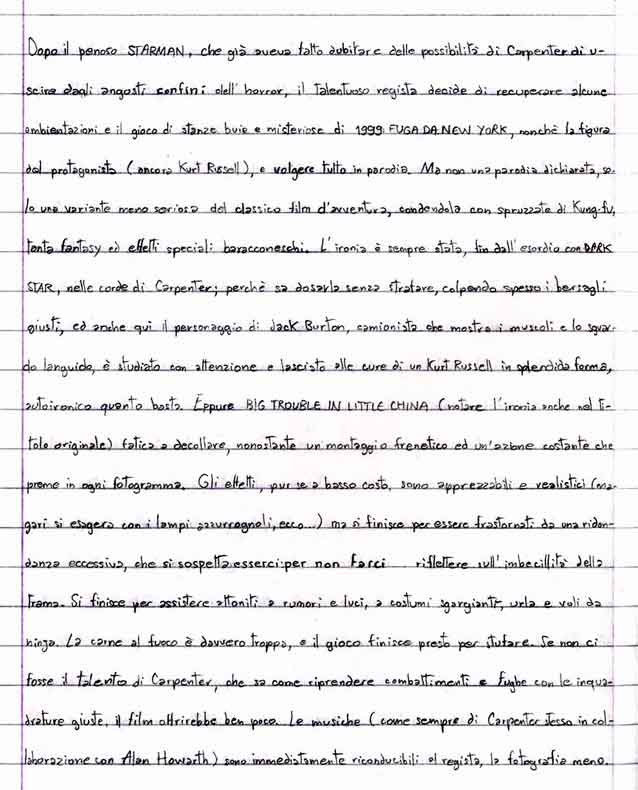 Dopo il penoso STARMAN, che già aveva fatto dubitare delle possibilità di Carpenter di u-
scire dagli angosti confini dell'horror, il talentuoso regista decide di recuperare alcune
ambientazioni e il gioco di stanze buie e misteriose di 1999: FUGA DA NEW YORK, nonchè la figura
del protagonista (ancora Kurt Russell), e volgere tutto in parodia. Ma non una parodia dichiarata, so-
lo una variante meno seriosa del classico film d'avventura, condendola con spruzzate di Kung-fu,
tanta fantasy ed effetti speciali baracconeschi. L'ironia è sempre stata, fin dall'esordio con DARK
STAR, nelle corde di Carpenter; perchè sa dosarla senza strafare, colpendo spesso i bersagli
giusti, ed anche qui il personaggio di Jack Burton, camionista che mostra i muscoli e lo sguar-
do languido, è studiato con attenzione e lasciato alle cure di un Kurt Russell in splendida forma,
autoironico quanto basta. Eppure BIG TROUBLE IN LITTLE CHINA (notare l'ironia anche nel ti-
tolo originale) fatica a decollare, nonostante un montaggio frenetico ed un'azione costante che
preme in ogni fotogramma. Gli effetti, pur se a basso costo, sono apprezzabili e realistici (ma-
gari si esagera con i lampi azzurrognoli, ecco...) ma si finisce per essere frastornati da una ridon-
danza eccessiva, che si sospetta esserci per non farci riflettere sull'imbecillità della
trama. Si finisce per assistere attoniti a rumori e luci, a costumi sgargianti, urla e voli da
ninja. La carne al fuoco è davvero troppa, e il gioco finisce presto per stufare. Se non ci
fosse il talento di Carpenter, che sa come riprendere combattimenti e fughe con le inqua-
drature giuste, il film offrirebbe ben poco. Le musiche (come sempre di Carpenter stesso in col-
laborazione con Alan Howarth) sono immediatamente riconducibili al regista, la fotografia meno.